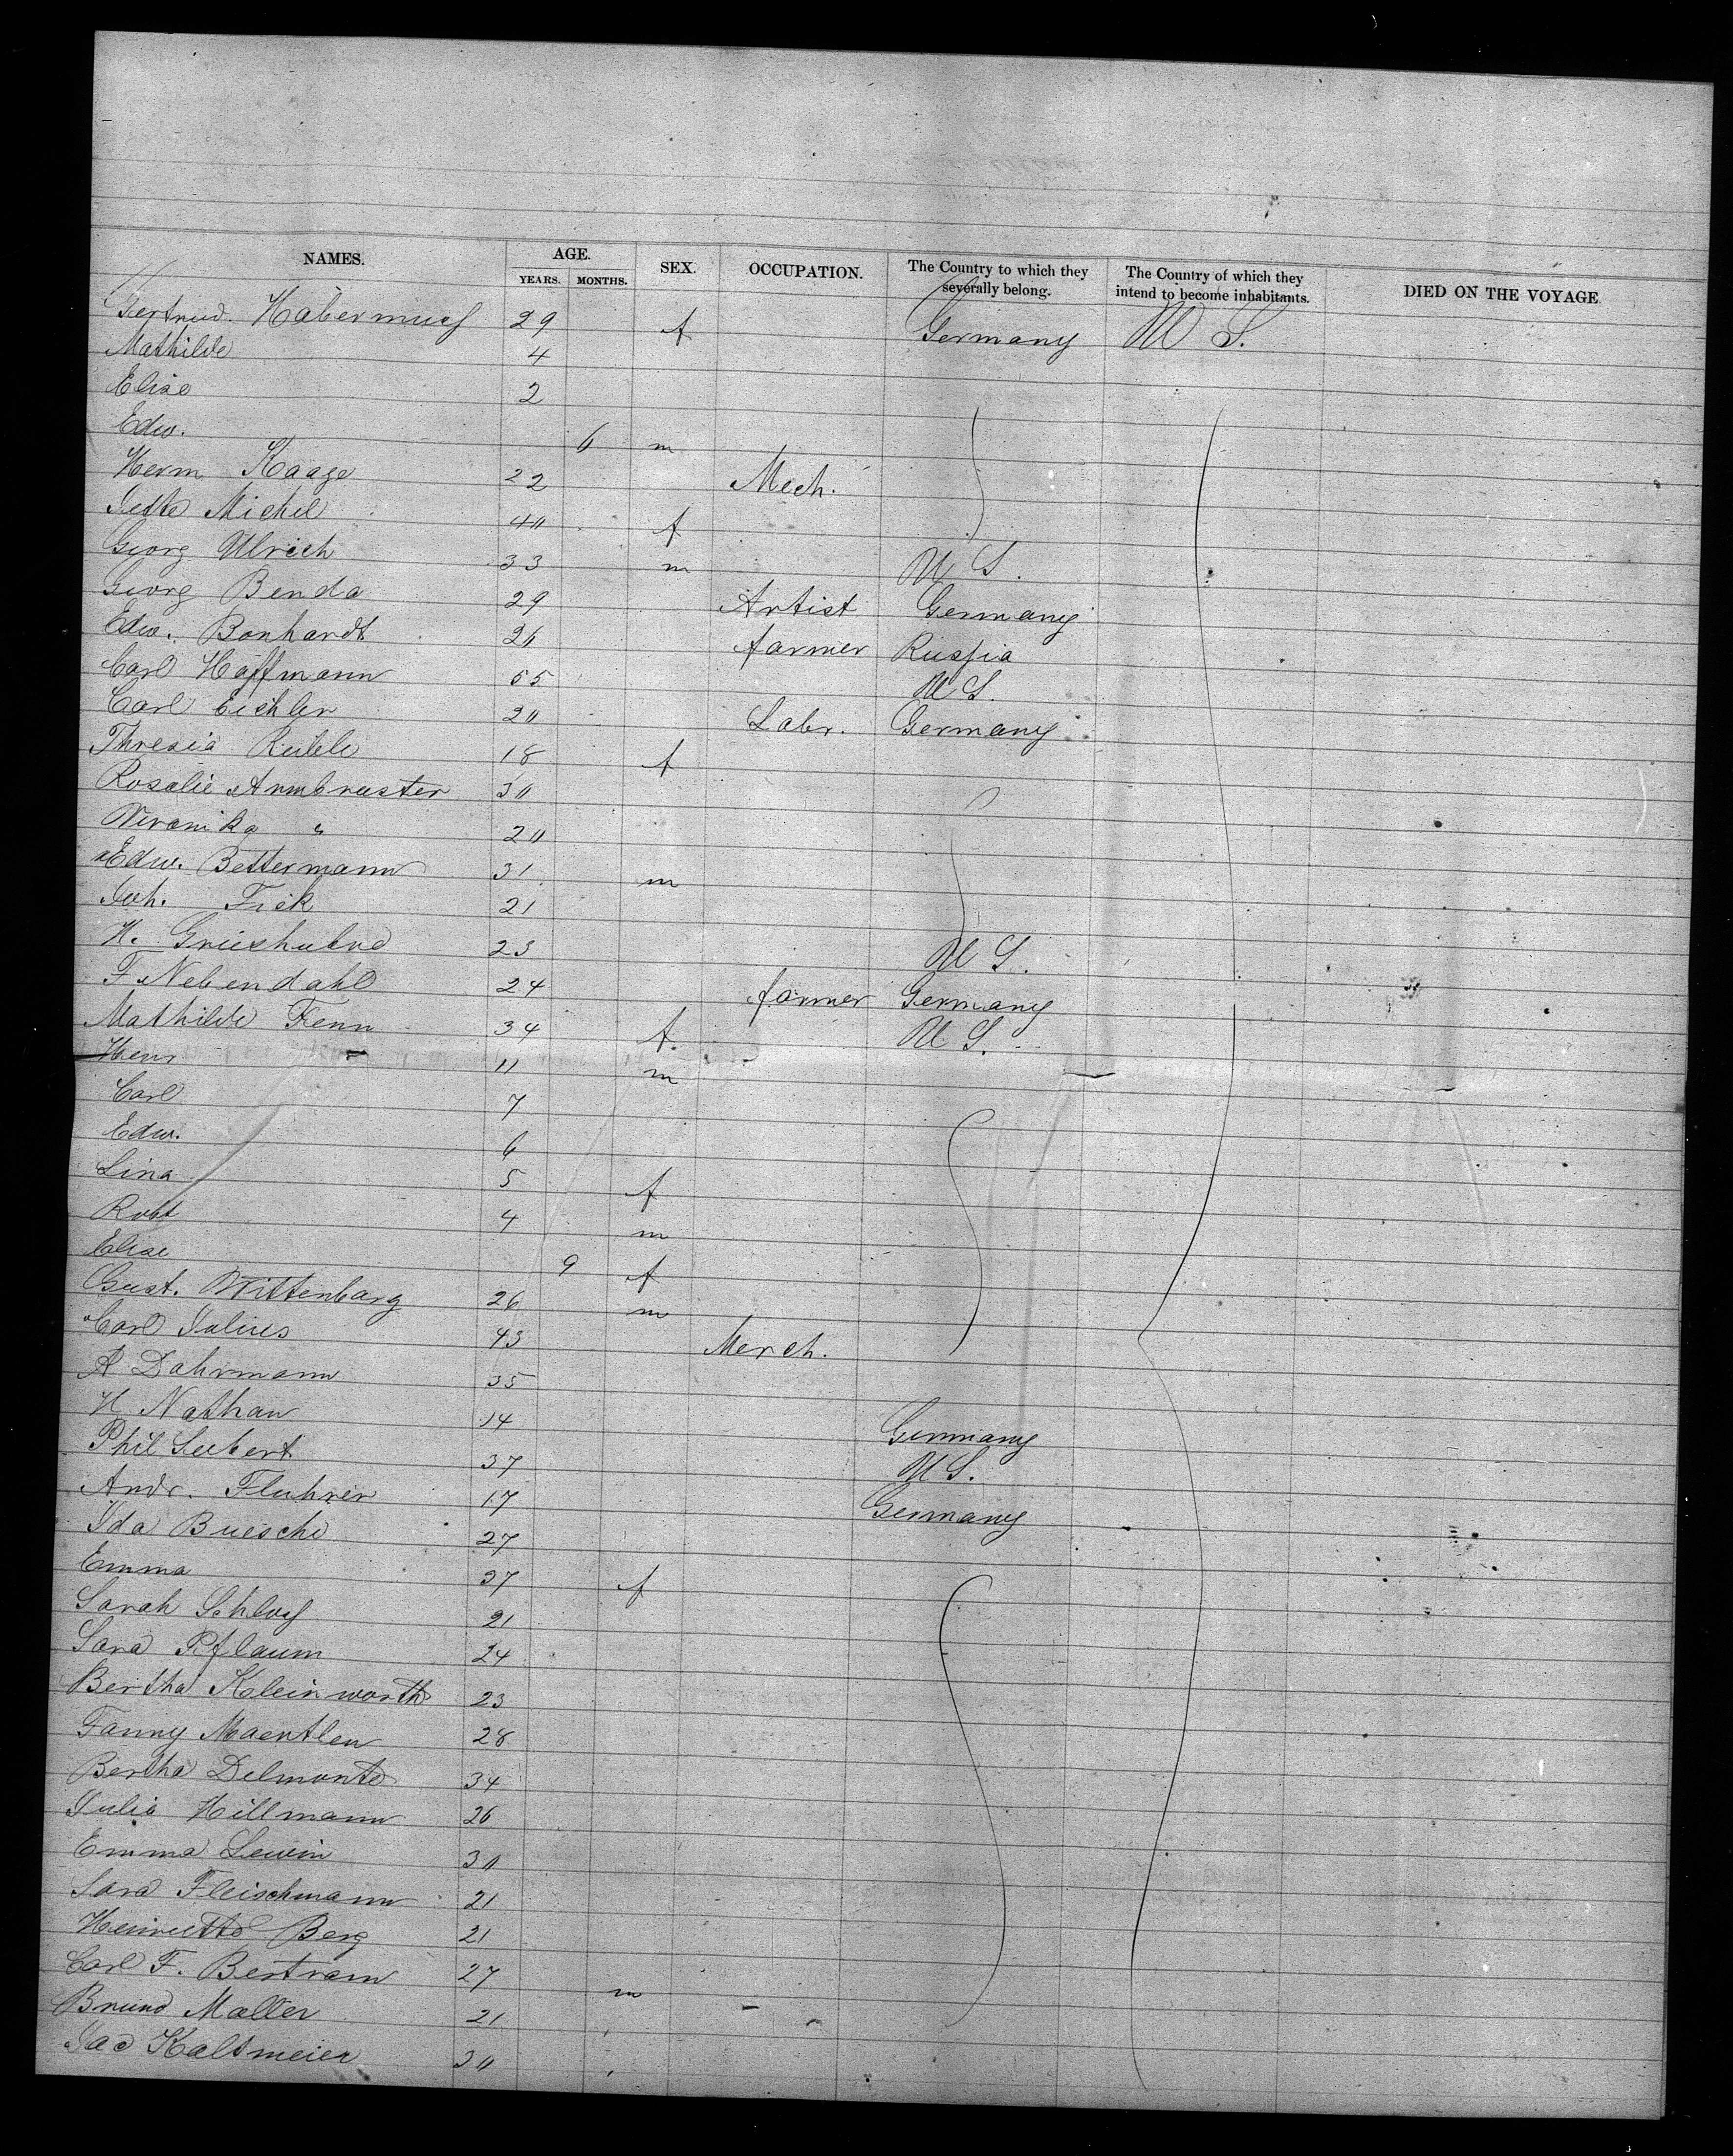 NAMES. AGE. SEX. OCCUPATION. The Country to which they severally belong. The Country of which they intend to become inhabitants. DIED ON THE VOYAGE
YEARS. MONTHS.
Gertrud. Habermuch 29 f Germany U S.
Mathilde 4
Elise 2
Edw. 6 m
Herm Kaage 22 Mech.
Jette Michel 40 f
Georg Ulrich 33 m U S.
Georg Benda 29 Artist Germany
Edw. Bonhardt 26 farmer Russia
Carl Hoffmann 55 U S.
Carl Eichler 20 Labr. Germany
Thresia 18 f
Rosalie Armbruster 30
Veronika " 20
Edw. Bettermann 31 m
Joh. Fick 21
H. 23 U S.
F Nebendahl 24 farmer Germany
Mathilde Fenn 34 f. U S.
Henr 11 m
Carl 7
Edw. 6
Lina 5 f
Robt 4 m
Elise 9 f
Gust. Wittenbarg 26 m
Carl Julius 43 Merch.
A Dahrmann 35
H Nathan 14 Germany
Phil Seubert 37 U S.
Andr. Fluhrer 17 Germany
Ida Buesche 27
Emma 37 f
Sarah Schloss 21
Sara Pflaum 24
Bertha Kleinworth 23
Fanny Maentlen 28
Bertha Delmonte 34
Julie Hillmann 26
Emma Lewin 30
Sara Fleischmann 21
Henriette Berg 21
Carl F. Bertram 27 m
Bruno Moller 21
Jac Kaltmeier 30